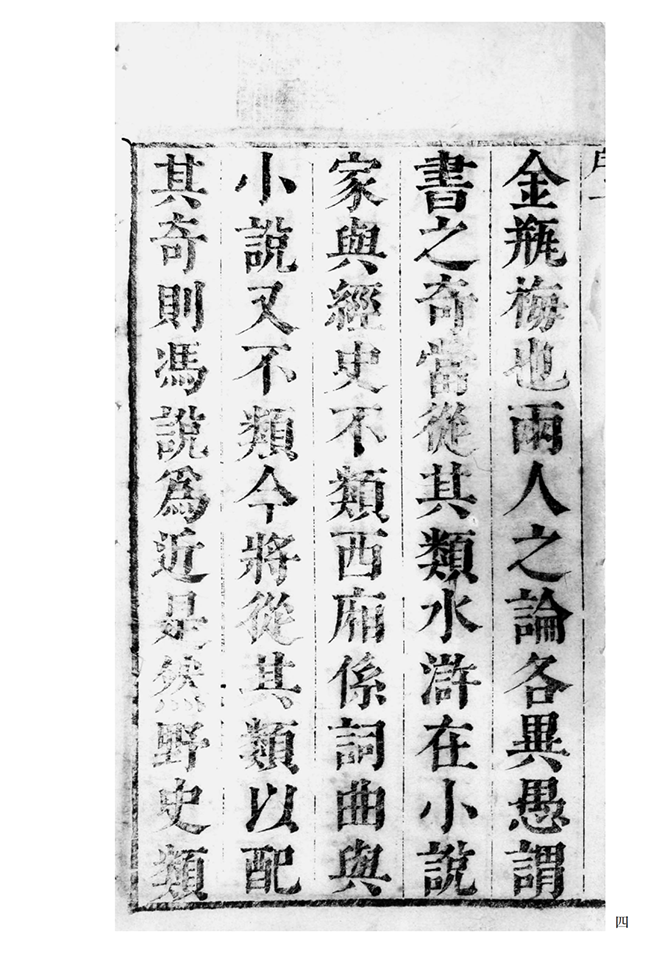 金瓶梅也兩人之論各異愚謂
書之奇當從其類水滸在小說
家與經史不類西廂係詞曲與
小說又不類今將從其類以配
其奇則馮說爲近是然野史類
四